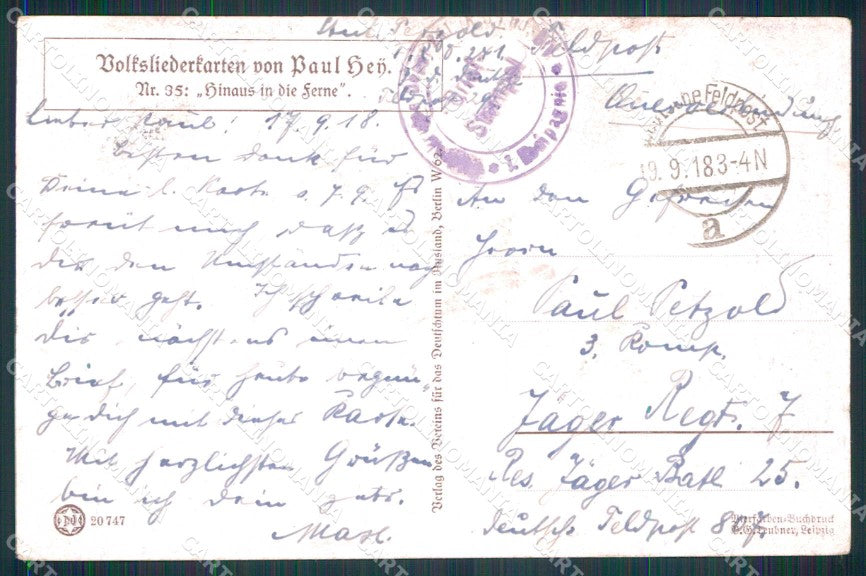 Petzold
Feldpost
Volksliederkarten von Paul Hey.
Nr. 35: „Hinaus in die Ferne".
Stempel
Kompagnie
Deutsche Feldpost
9.9.18 3-4N
a
Lieber Paul! 17.9.18.
Besten Dank für
Deine l. Karte v. 7.9. Es
freut mich daß es
dir den Umständen nach
besser geht. Ich schreibe
dir nächstens einen
Brief, für heute begnü-
ge dich mit dieser Karte.
Mit herzlichsten Grüßen
bin ich dein
Max.
An den Gefreiten
Herrn
Paul Petzold
3. Komp.
Jäger Regt. 7
Res. Jäger Batl 25.
Deutsche Feldpost
Verlag des Vereins für das Deutschtum im Ausland, Berlin W. 62.
20747
Vierfarben-Buchdruck
B.G. Teubner, Leipzig
CARTOLINOMANIA